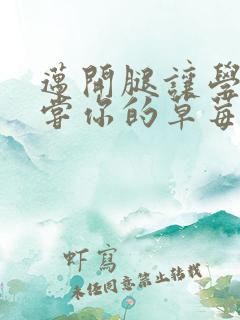 邁開腿讓學
嘗你的草莓
虾寫
未经同意禁止转载